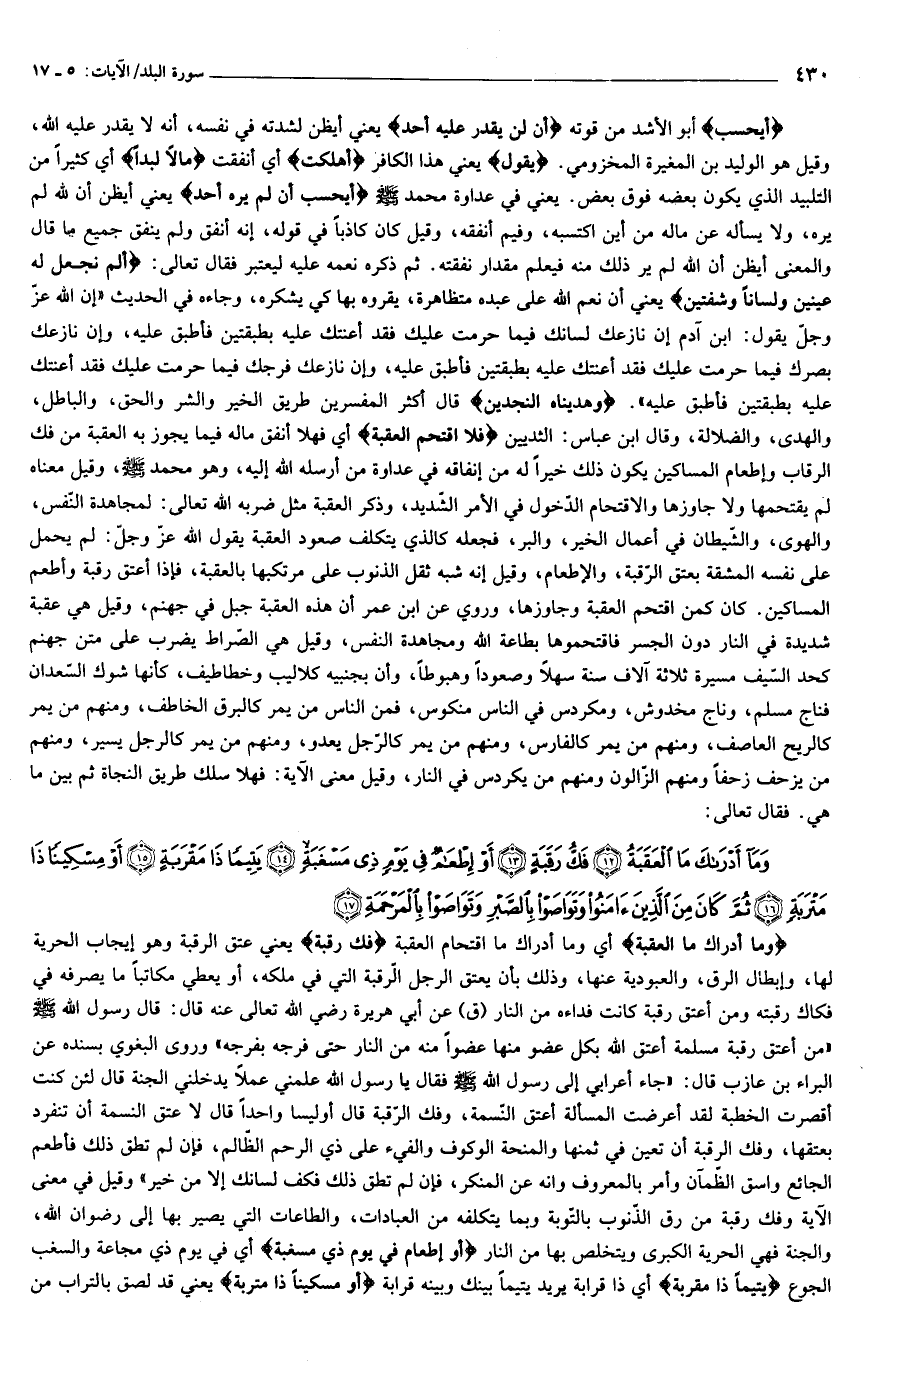 ٤٣٠ سورة البلد/ الآيات: ٥ ـ ١٧
﴿أيحسب﴾ أبو الأشد من قوته ﴿أن لن يقدر عليه أحد﴾ يعني أيظن لشدته في نفسه، أنه لا يقدر عليه الله،
وقيل هو الوليد بن المغيرة المخزومي. ﴿يقول﴾ يعني هذا الكافر ﴿أهلكت﴾ أي أنفقت ﴿مالاً لبداً﴾ أي كثيراً من
التلبيد الذي يكون بعضه فوق بعض. يعني في عداوة محمد ﷺ ﴿أيحسب أن لم يره أحد﴾ يعني أيظن أن لله لم
يره، ولا يسأله عن ماله من أين اكتسبه، وفيم أنفقه، وقيل كان كاذباً في قوله، إنه أنفق ولم ينفق جميع ما قال
والمعنى أيظن أن الله لم ير ذلك منه فيعلم مقدار نفقته. ثم ذكره نعمه عليه ليعتبر فقال تعالى: ﴿ألم نجعل له
عينين ولساناً وشفتين﴾ يعني أن نعم الله على عبده متظاهرة، يقروه بها كي يشكره، وجاءه في الحديث «إن الله عزّ
وجلّ يقول: ابن آدم إن نازعك لسانك فيما حرمت عليك فقد أعنتك عليه بطبقتين فأطبق عليه، وإن نازعك
بصرك فيما حرمت عليك فقد أعنتك عليه بطبقتين فأطبق عليه، وإن نازعك فرجك فيما حرمت عليك فقد أعنتك
عليه بطبقتين فأطبق عليه». ﴿وهديناه النجدين﴾ قال أكثر المفسرين طريق الخير والشر والحق، والباطل،
والهدى، والضلالة، وقال ابن عباس: الثديين ﴿فلا اقتحم العقبة﴾ أي فهلا أنفق ماله فيما يجوز به العقبة من فك
الرقاب وإطعام المساكين يكون ذلك خيراً له من إنفاقه في عداوة من أرسله الله إليه، وهو محمد ﷺ، وقيل معناه
لم يقتحمها ولا جاوزها والاقتحام الدّخول في الأمر الشّديد، وذكر العقبة مثل ضربه الله تعالى: لمجاهدة النّفس،
والهوى، والشّيطان في أعمال الخير، والبر، فجعله كالذي يتكلف صعود العقبة يقول الله عزّ وجلّ: لم يحمل
على نفسه المشقة بعتق الرّقبة، والإطعام، وقيل إنه شبه ثقل الذنوب على مرتكبها بالعقبة، فإذا أعتق رقبة وأطعم
المساكين. كان كمن اقتحم العقبة وجاوزها، وروي عن ابن عمر أن هذه العقبة جبل في جهنم، وقيل هي عقبة
شديدة في النار دون الجسر فاقتحموها بطاعة الله ومجاهدة النفس، وقيل هي الصّراط يضرب على متن جهنم
كحد السّيف مسيرة ثلاثة آلاف سنة سهلاً وصعوداً وهبوطاً، وأن بجنبيه كلاليب وخطاطيف، كأنها شوك السّعدان
فناج مسلم، وناج مخدوش، ومكردس في الناس منكوس، فمن الناس من يمر كالبرق الخاطف، ومنهم من يمر
كالريح العاصف، ومنهم من يمر كالفارس، ومنهم من يمر كالرّجل يعدو، ومنهم من يمر كالرجل يسير، ومنهم
من يزحف زحفاً ومنهم الزّالون ومنهم من يكردس في النار، وقيل معنى الآية: فهلا سلك طريق النجاة ثم بين ما
هي. فقال تعالى:
وَمَآ أَدْرَىٰكَ مَا ٱلْعَقَبَةُ ﴿١٢﴾ فَكُّ رَقَبَةٍ ﴿١٣﴾ أَوْ إِطْعَـٰمٌ فِى يَوْمٍ ذِى مَسْغَبَةٍ ﴿١٤﴾ يَتِيمًا ذَا مَقْرَبَةٍ ﴿١٥﴾ أَوْ مِسْكِينًا ذَا
مَتْرَبَةٍ ﴿١٦﴾ ثُمَّ كَانَ مِنَ ٱلَّذِينَ ءَامَنُوا۟ وَتَوَاصَوْا۟ بِٱلصَّبْرِ وَتَوَاصَوْا۟ بِٱلْمَرْحَمَةِ ﴿١٧﴾
﴿وما أدراك ما العقبة﴾ أي وما أدراك ما اقتحام العقبة ﴿فك رقبة﴾ يعني عتق الرقبة وهو إيجاب الحرية
لها، وإبطال الرق، والعبودية عنها، وذلك بأن يعتق الرجل الرّقبة التي في ملكه، أو يعطي مكاتباً ما يصرفه في
فكاك رقبته ومن أعتق رقبة كانت فداءه من النار (ق) عن أبي هريرة رضي الله تعالى عنه قال: قال رسول الله ﷺ
«من أعتق رقبة مسلمة أعتق الله بكل عضو منها عضواً منه من النار حتى فرجه بفرجه» وروى البغوي بسنده عن
البراء بن عازب قال: «جاء أعرابي إلى رسول الله ﷺ فقال يا رسول الله علمني عملاً يدخلني الجنة قال لئن كنت
أقصرت الخطبة لقد أعرضت المسألة أعتق النّسمة، وفك الرّقبة قال أوليسا واحداً قال لا عتق النسمة أن تنفرد
بعتقها، وفك الرقبة أن تعين في ثمنها والمنحة الوكوف والفيء على ذي الرحم الظّالم، فإن لم تطق ذلك فأطعم
الجائع واسق الظّمآن وأمر بالمعروف وانه عن المنكر، فإن لم تطق ذلك فكف لسانك إلا من خير» وقيل في معنى
الآية وفك رقبة من رق الذّنوب بالتّوبة وبما يتكلفه من العبادات، والطاعات التي يصير بها إلى رضوان الله،
والجنة فهي الحرية الكبرى ويتخلص بها من النار ﴿أو إطعام في يوم ذي مسغبة﴾ أي في يوم ذي مجاعة والسغب
الجوع ﴿يتيماً ذا مقربة﴾ أي ذا قرابة يريد يتيماً بينك وبينه قرابة ﴿أو مسكيناً ذا متربة﴾ يعني قد لصق بالتراب من